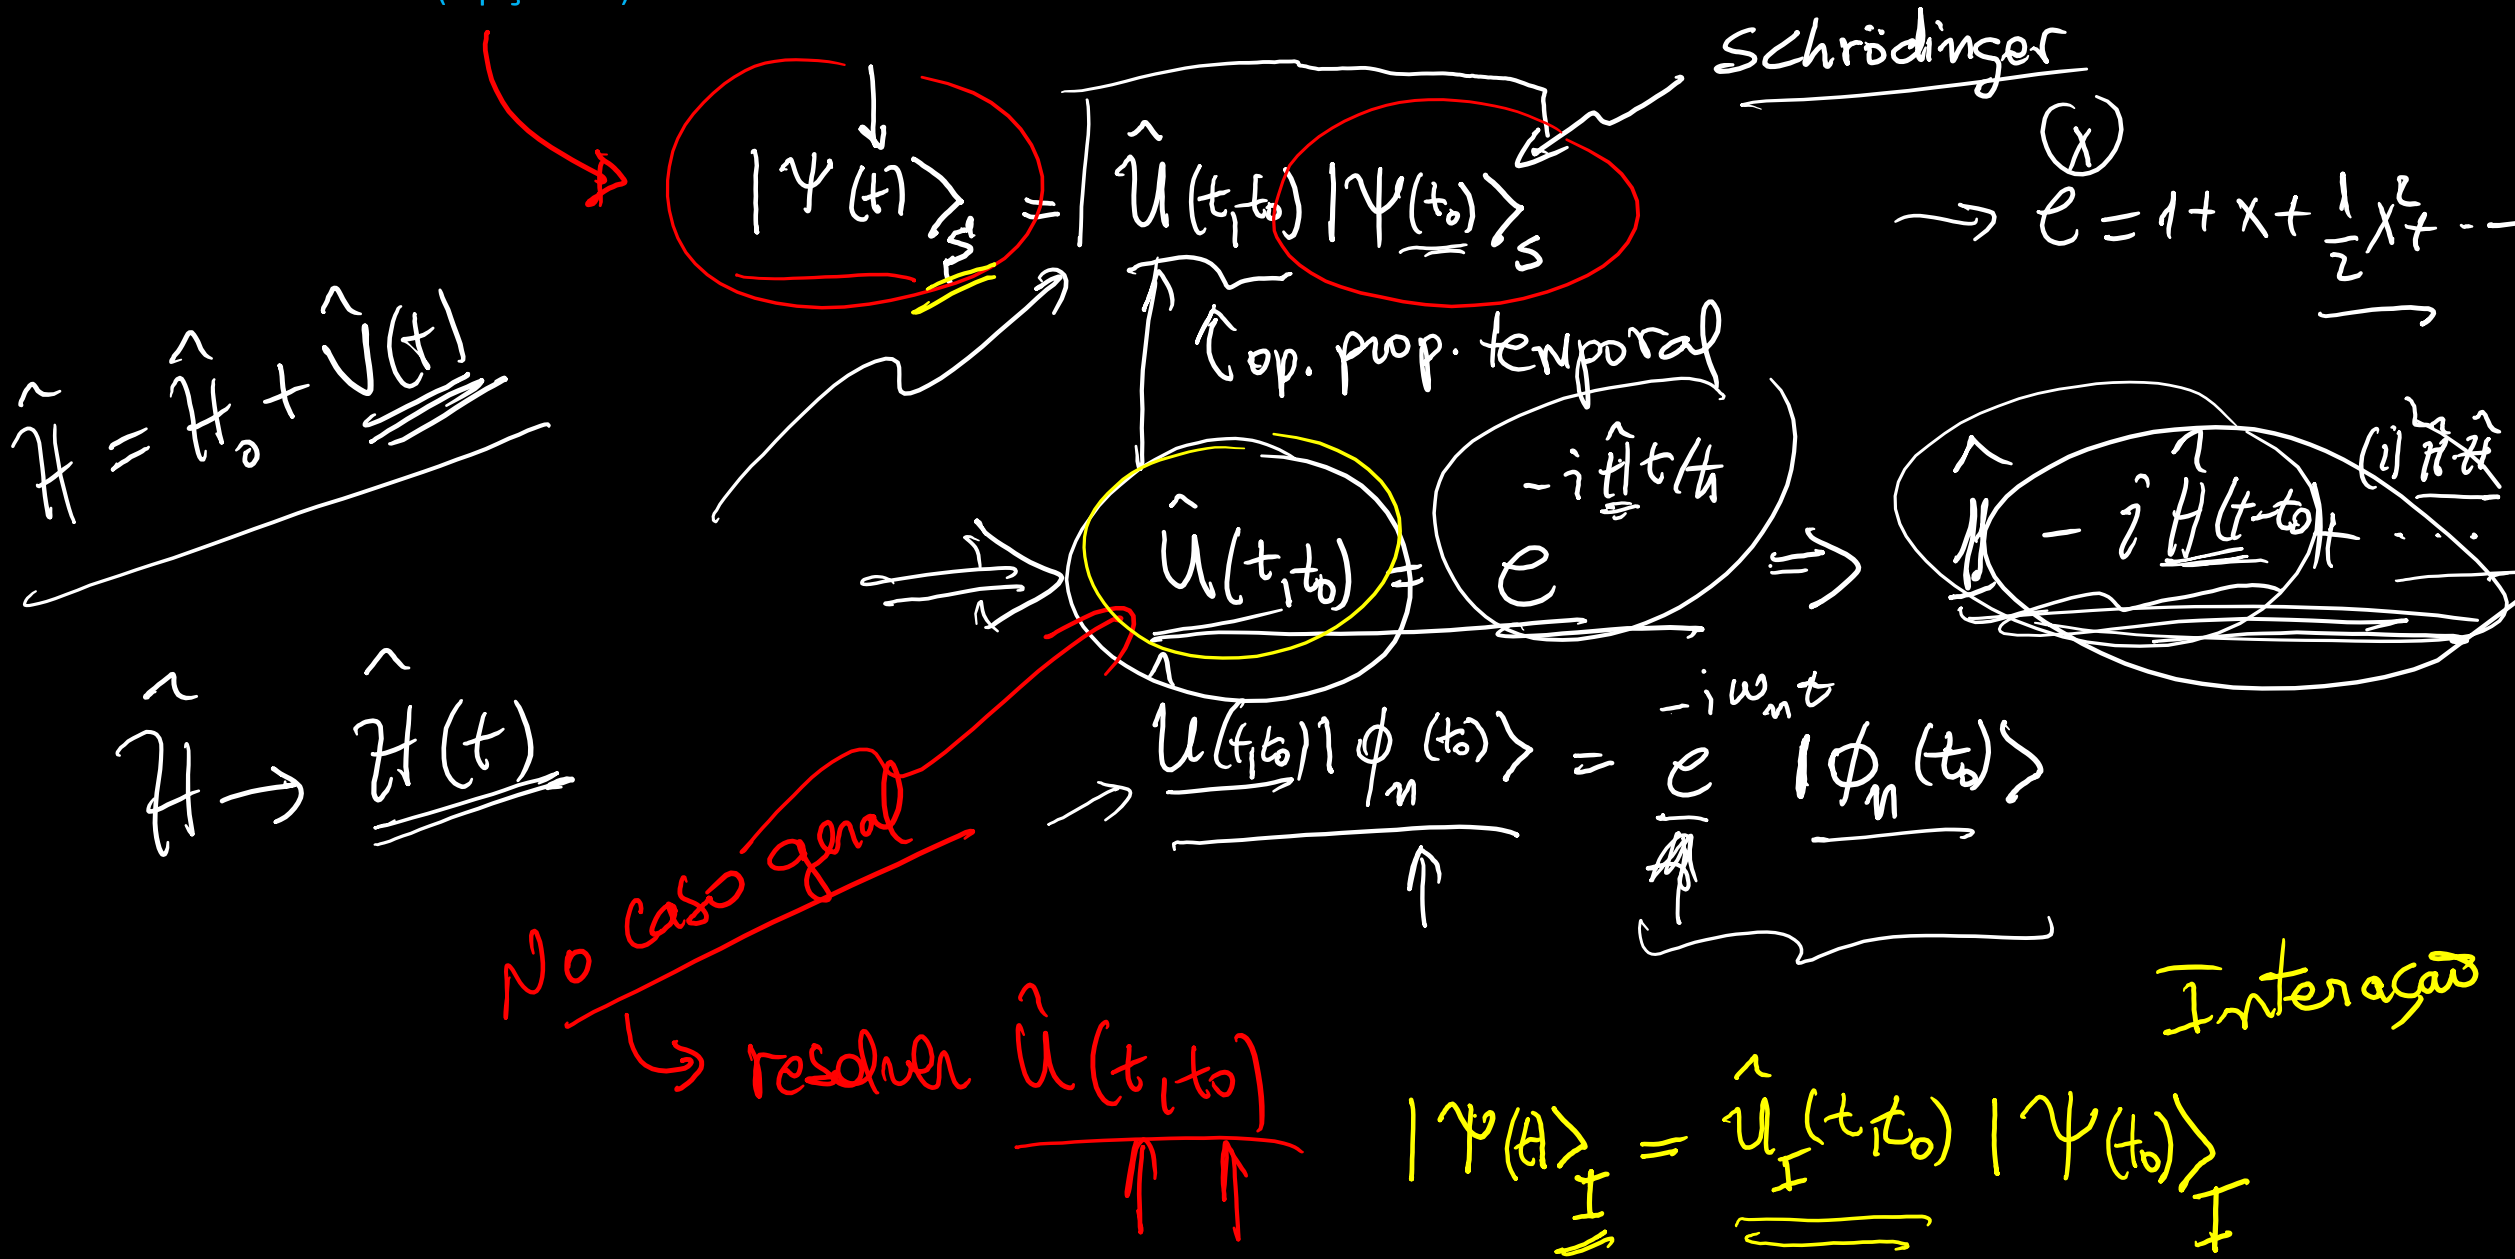 Schrödinger
|Ψ(t)⟩_S = Û(t,t₀) |Ψ(t₀)⟩_S
→ e^x = 1 + x + 1/2 x² + ...
op. prop. temporal
Ĥ = Ĥ₀ + V̂(t)
⇒ Û(t,t₀) = e^{-iĤt/ħ} ⇒ 1̂ - iĤ(t-t₀) + ...
Ĥ → Ĥ(t)
→ Û(t,t₀)|ϕₙ(t₀)⟩ = e^{-iωₙt} |ϕₙ(t₀)⟩
No caso geral
↳ resolver Û(t,t₀)
Interação
|Ψ(t)⟩_I = Û_I(t,t₀) |Ψ(t₀)⟩_I